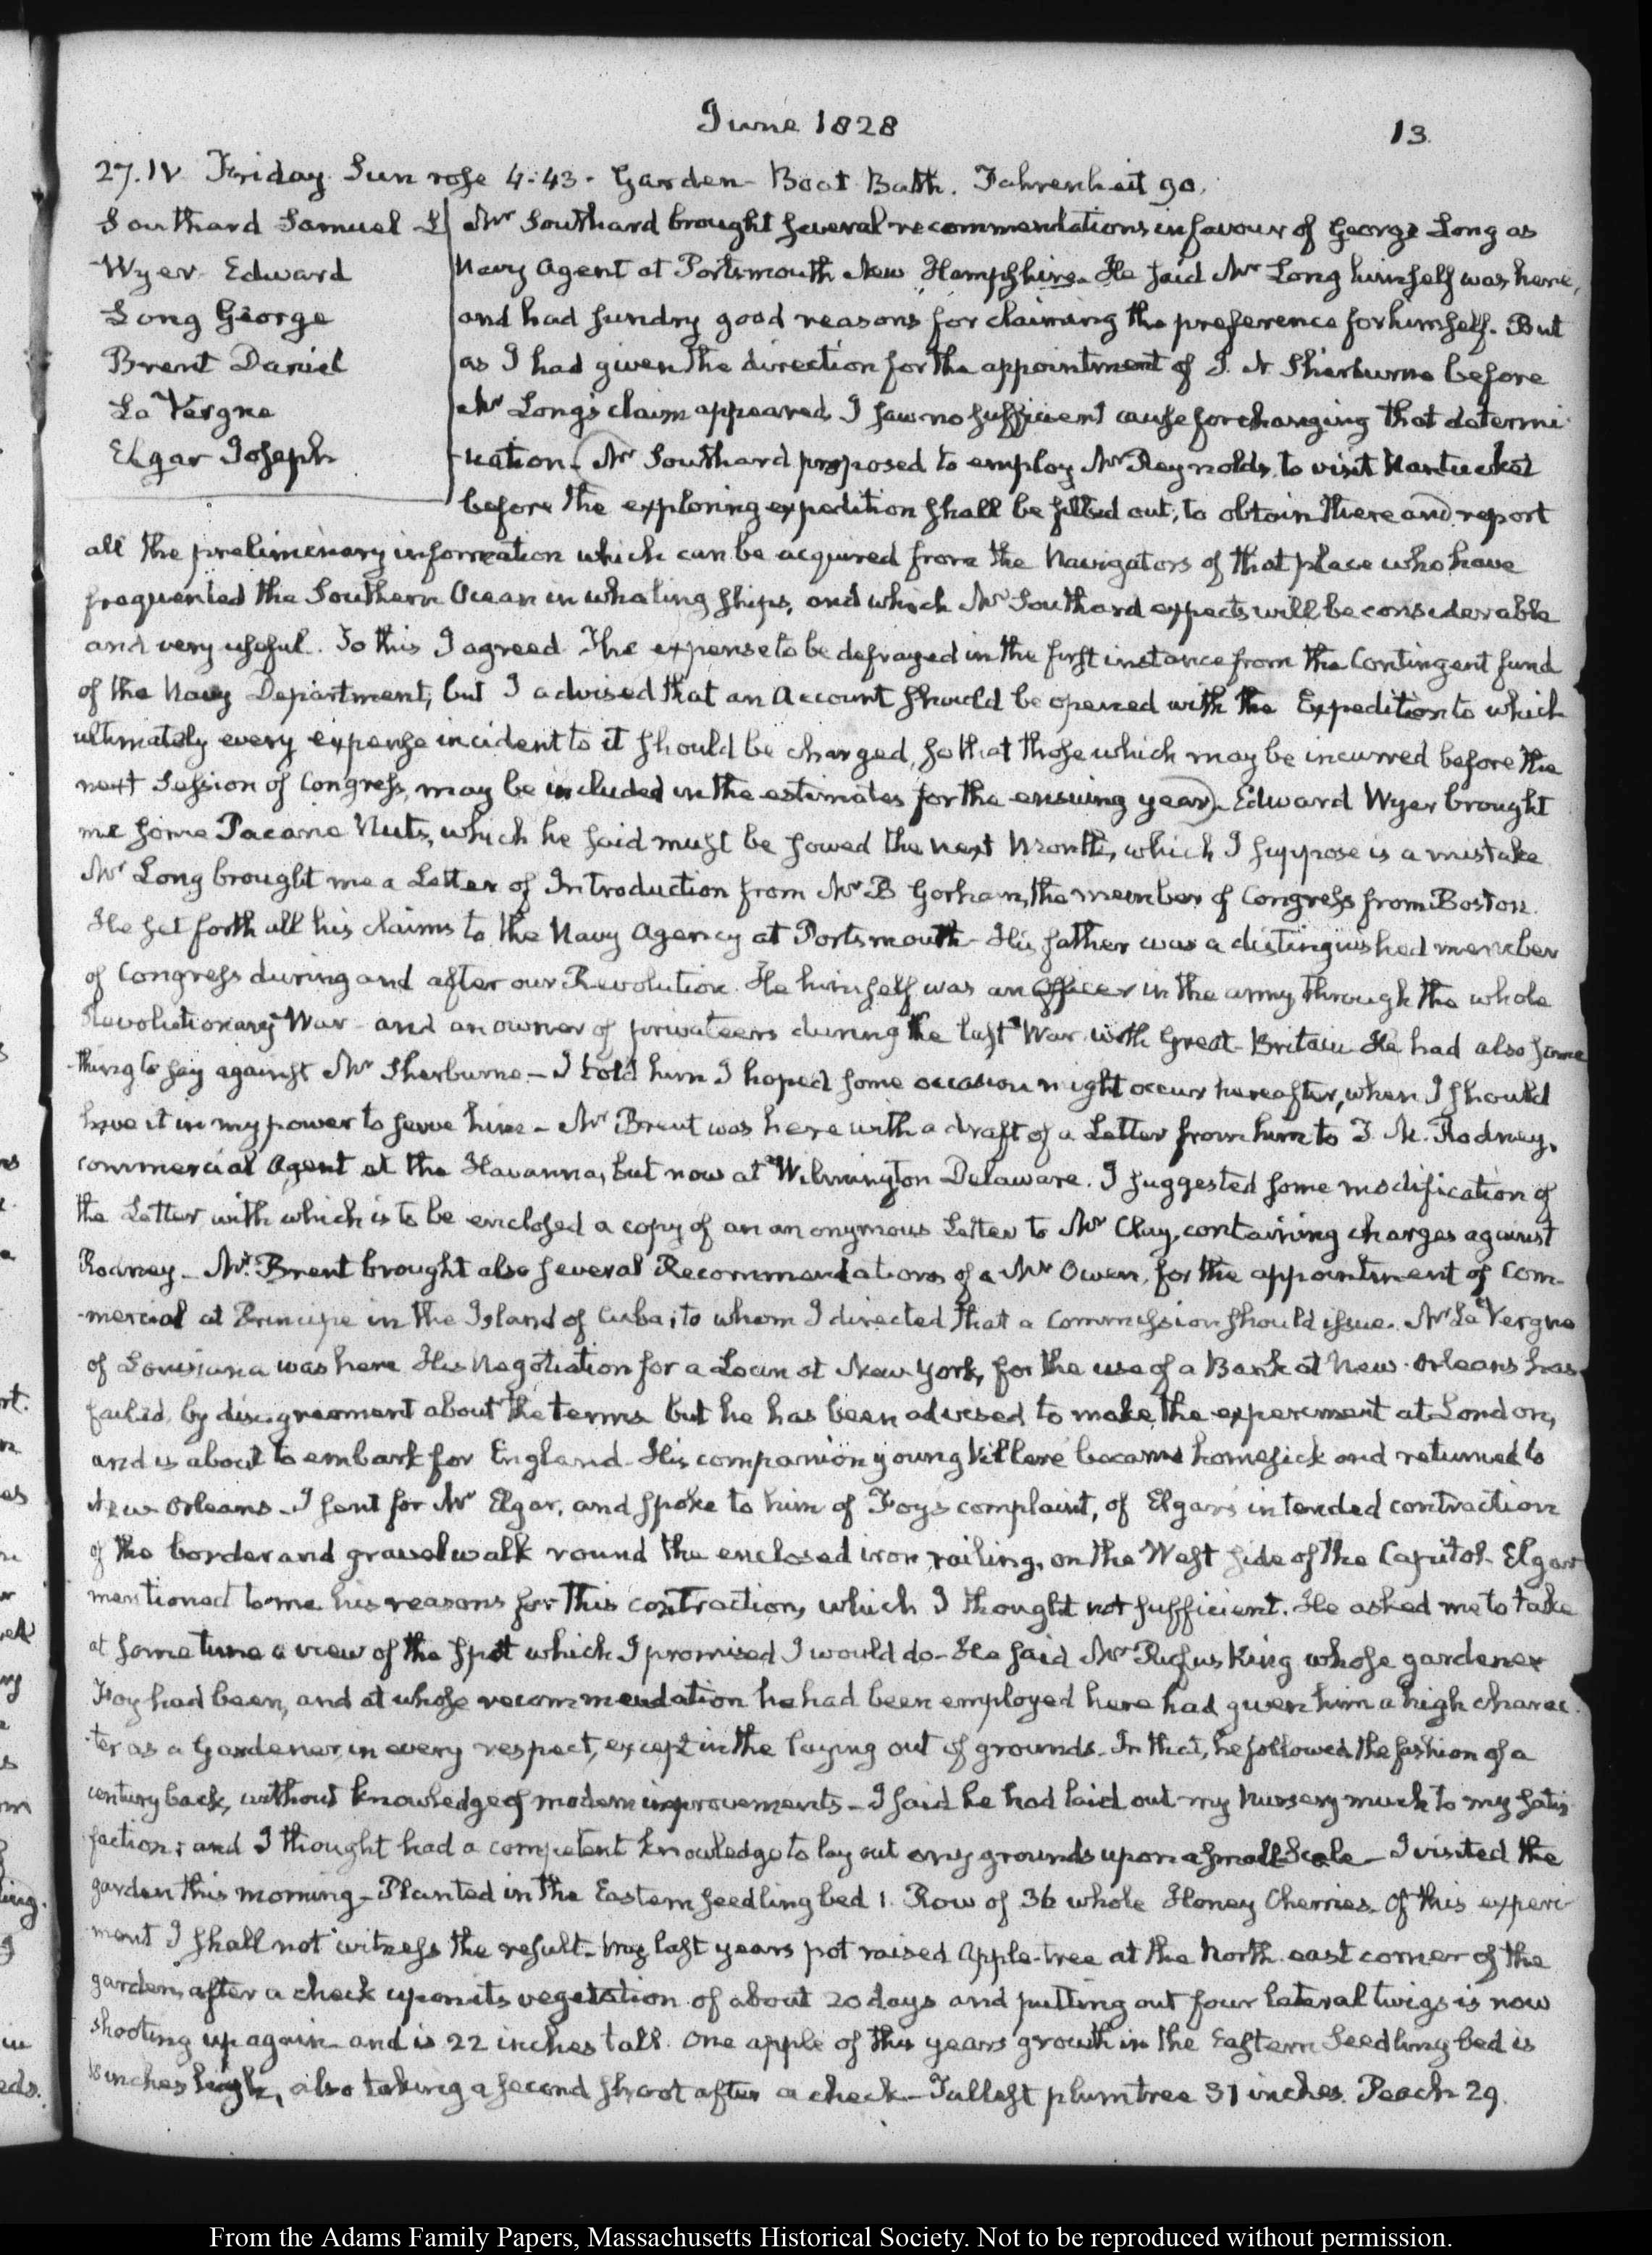 June 1828
13.
27. IV. Friday. Sun rose 4:43. Garden – Boat Bath. Fahrenheit 90.
Southard Samuel L
Wyer Edward
Long George
Brent Daniel
La Vergne
Elgar Joseph
Mr Southard brought several recommendations in favour of George Long as
Navy Agent at Portsmouth New Hampshire. He said Mr Long himself was here,
and had sundry good reasons for claiming the preference for himself. But
as I had given the direction for the appointment of J. N. Sherburne before
Mr Long's claim appeared I saw no sufficient cause for changing that determi-
-nation. (Mr Southard proposed to employ Mr Reynolds, to visit Nantucket
before the exploring expedition shall be fitted out, to obtain there and report
all the preliminary information which can be acquired from the Navigators of that place who have
frequented the Southern Ocean in whaling ships, and which Mr Southard expects will be considerable
and very useful. To this I agreed. The expense to be defrayed in the first instance from the Contingent fund
of the Navy Department; but I advised that an Account should be opened with the Expedition to which
ultimately every expense incident to it should be charged, so that those which may be incurred before the
next Session of Congress, may be included in the estimates for the ensuing year). Edward Wyer brought
me some Pacane Nuts, which he said must be sowed the next Month, which I suppose is a mistake
Mr Long brought me a Letter of Introduction from Mr B Gorham, the member of Congress from Boston.
He set forth all his claims to the Navy Agency at Portsmouth – His father was a distinguished member
of Congress during and after our Revolution. He himself was an Officer in the army through the whole
Revolutionary War – and an owner of privateers during the last War with Great-Britain. He had also some
-thing to say against Mr Sherburne. – I told him I hoped some occasion might occur hereafter, when I should
have it in my power to serve him – Mr Brent was here with a draft of a Letter from him to T. M. Rodney,
commercial Agent at the Havanna, but now at Wilmington Delaware. I suggested some modification of
the Letter, with which is to be enclosed a copy of an anonymous Letter to Mr Clay, containing charges against
Rodney – Mr. Brent brought also several Recommendations of a Mr Owen, for the appointment of Com-
-mercial at Principe in the Island of Cuba; to whom I directed that a Commission should issue. Mr La Vergne
of Louisiana was here. His Negotiation for a Loan at New York, for the use of a Bank at New-Orleans has
failed, by disagreement about the terms but he has been advised to make the experiment at London,
and is about to embark for England – His companion young Villere became homesick and returned to
New Orleans – I sent for Mr Elgar, and spoke to him of Foy's complaint, of Elgar's intended contraction
of the border and gravel walk round the enclosed iron railing, on the West side of the Capitol. Elgar
mentioned to me his reasons for this contraction, which I thought not sufficient. He asked me to take
at some time a view of the spot which I promised I would do – He said Mr Rufus King whose gardener
Foy had been, and at whose recommendation he had been employed here had given him a high charac-
-ter as a Gardener, in every respect, except in the laying out of grounds. In that, he followed the fashion of a
century back, without knowledge of modern improvements – I said he had laid out my Nursery much to my satis
faction; and I thought had a competent knowledge to lay out any grounds upon a small Scale – I visited the
garden this morning – Planted in the Eastern seedling bed 1. Row of 36 whole Honey Cherries. Of this experi-
ment I shall not witness the result. My last years pot raised Apple-tree at the North-east corner of the
garden, after a check upon its vegetation of about 20 days and putting out four lateral twigs is now
shooting up again and is 22 inches tall. One apple of this years growth in the Eastern Seedling bed is
inches high, also taking a second shoot after a check – Tallest plumtree 31 inches. Peach 29.
From the Adams Family Papers, Massachusetts Historical Society. Not to be reproduced without permission.